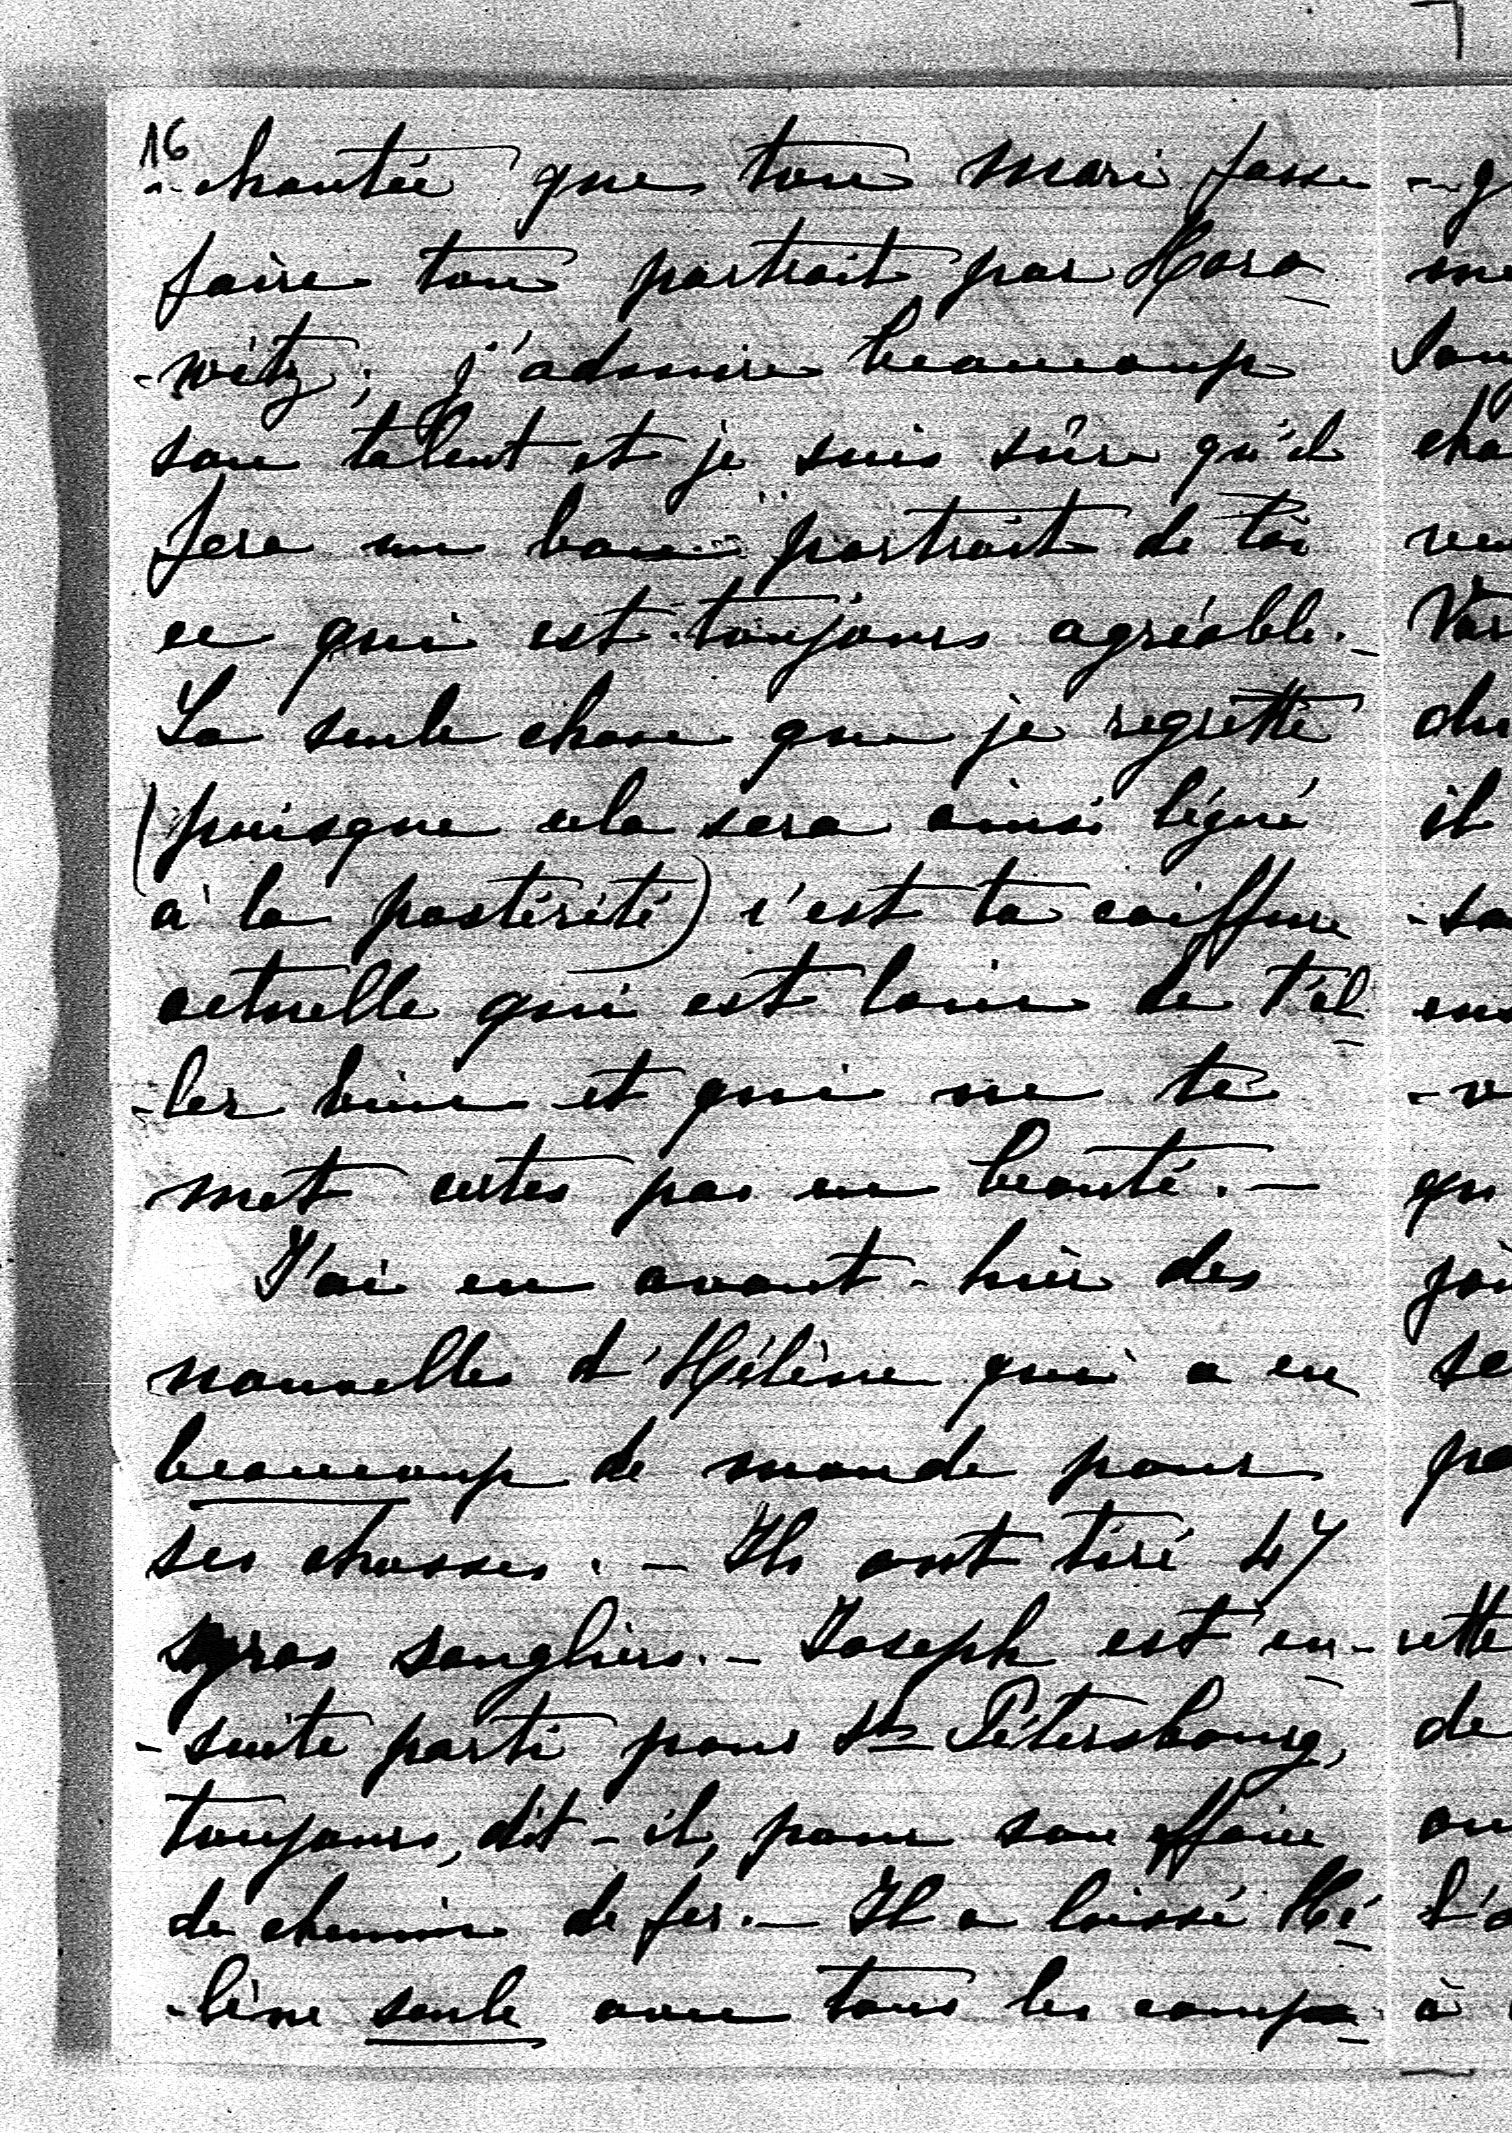 16
-chantée que ton mari fasse
faire ton portrait par Horo
-witz; j'admire beaucoup
son talent et je suis sûre qu'il
fera un bon portrait de toi
ce qui est toujours agréable.-
La seule chose que je regrette
(puisque cela sera ainsi légué
à la postérité) c'est ta coiffure
actuelle qui est loin de t'al
-ler bien et qui ne te
met certes pas en beauté.-
J'ai eu avant-hier des
nouvelles d'Hélène qui a eu
beaucoup de monde pour
ses chasses.- Ils ont tiré 47
gros sangliers.- Joseph est en-
-suite parti pour St Pétersbourg,
toujours, dit-il, pour son affaire
de chemin de fer.- Il a laissé Hé
-lène seule avec tous les comp